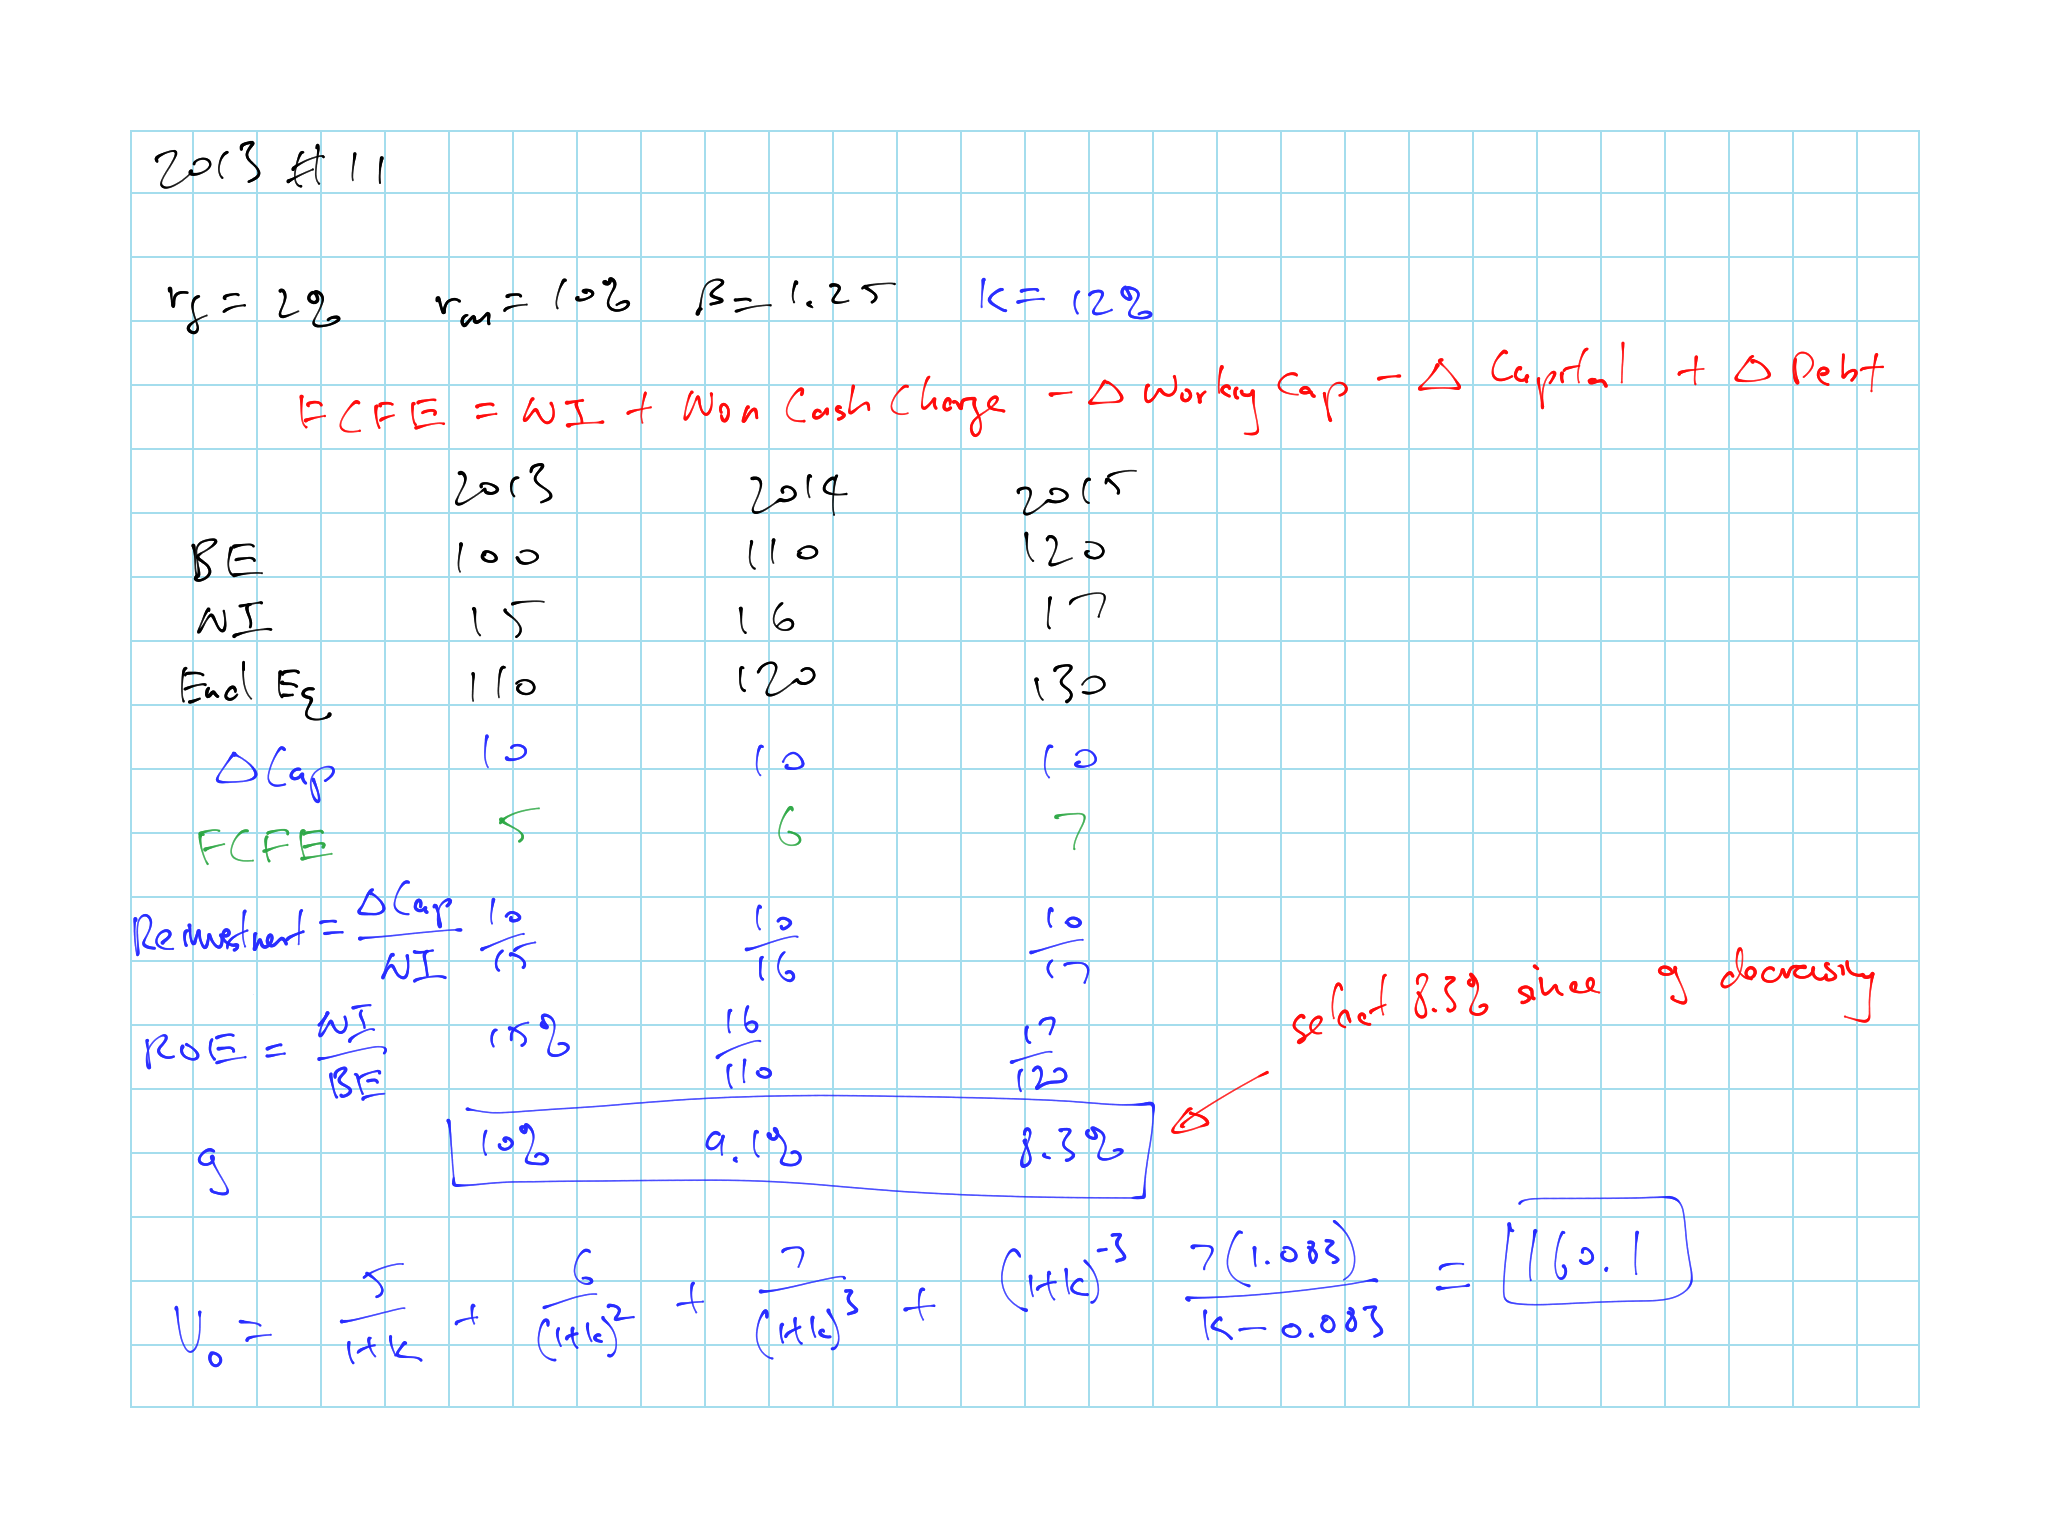 2013 # 11
r_f = 2% r_m = 10% β = 1.25 K = 12%
FCFE = NI + Non Cash Charge - Δ Working Cap - Δ Capital + Δ Debt
2013 2014 2015
BE 100 110 120
NI 15 16 17
End Eq 110 120 130
ΔCap 10 10 10
FCFE 5 6 7
Reinvestment = ΔCap/NI 10/15 10/16 10/17
select 8.3% since g decreasing
ROE = NI/BE 15% 16/110 17/120
g 10% 9.1% 8.3%
V_0 = 5/(1+k) + 6/(1+k)^2 + 7/(1+k)^3 + (1+k)^-3 7(1.083)/(k-0.083) = 160.1